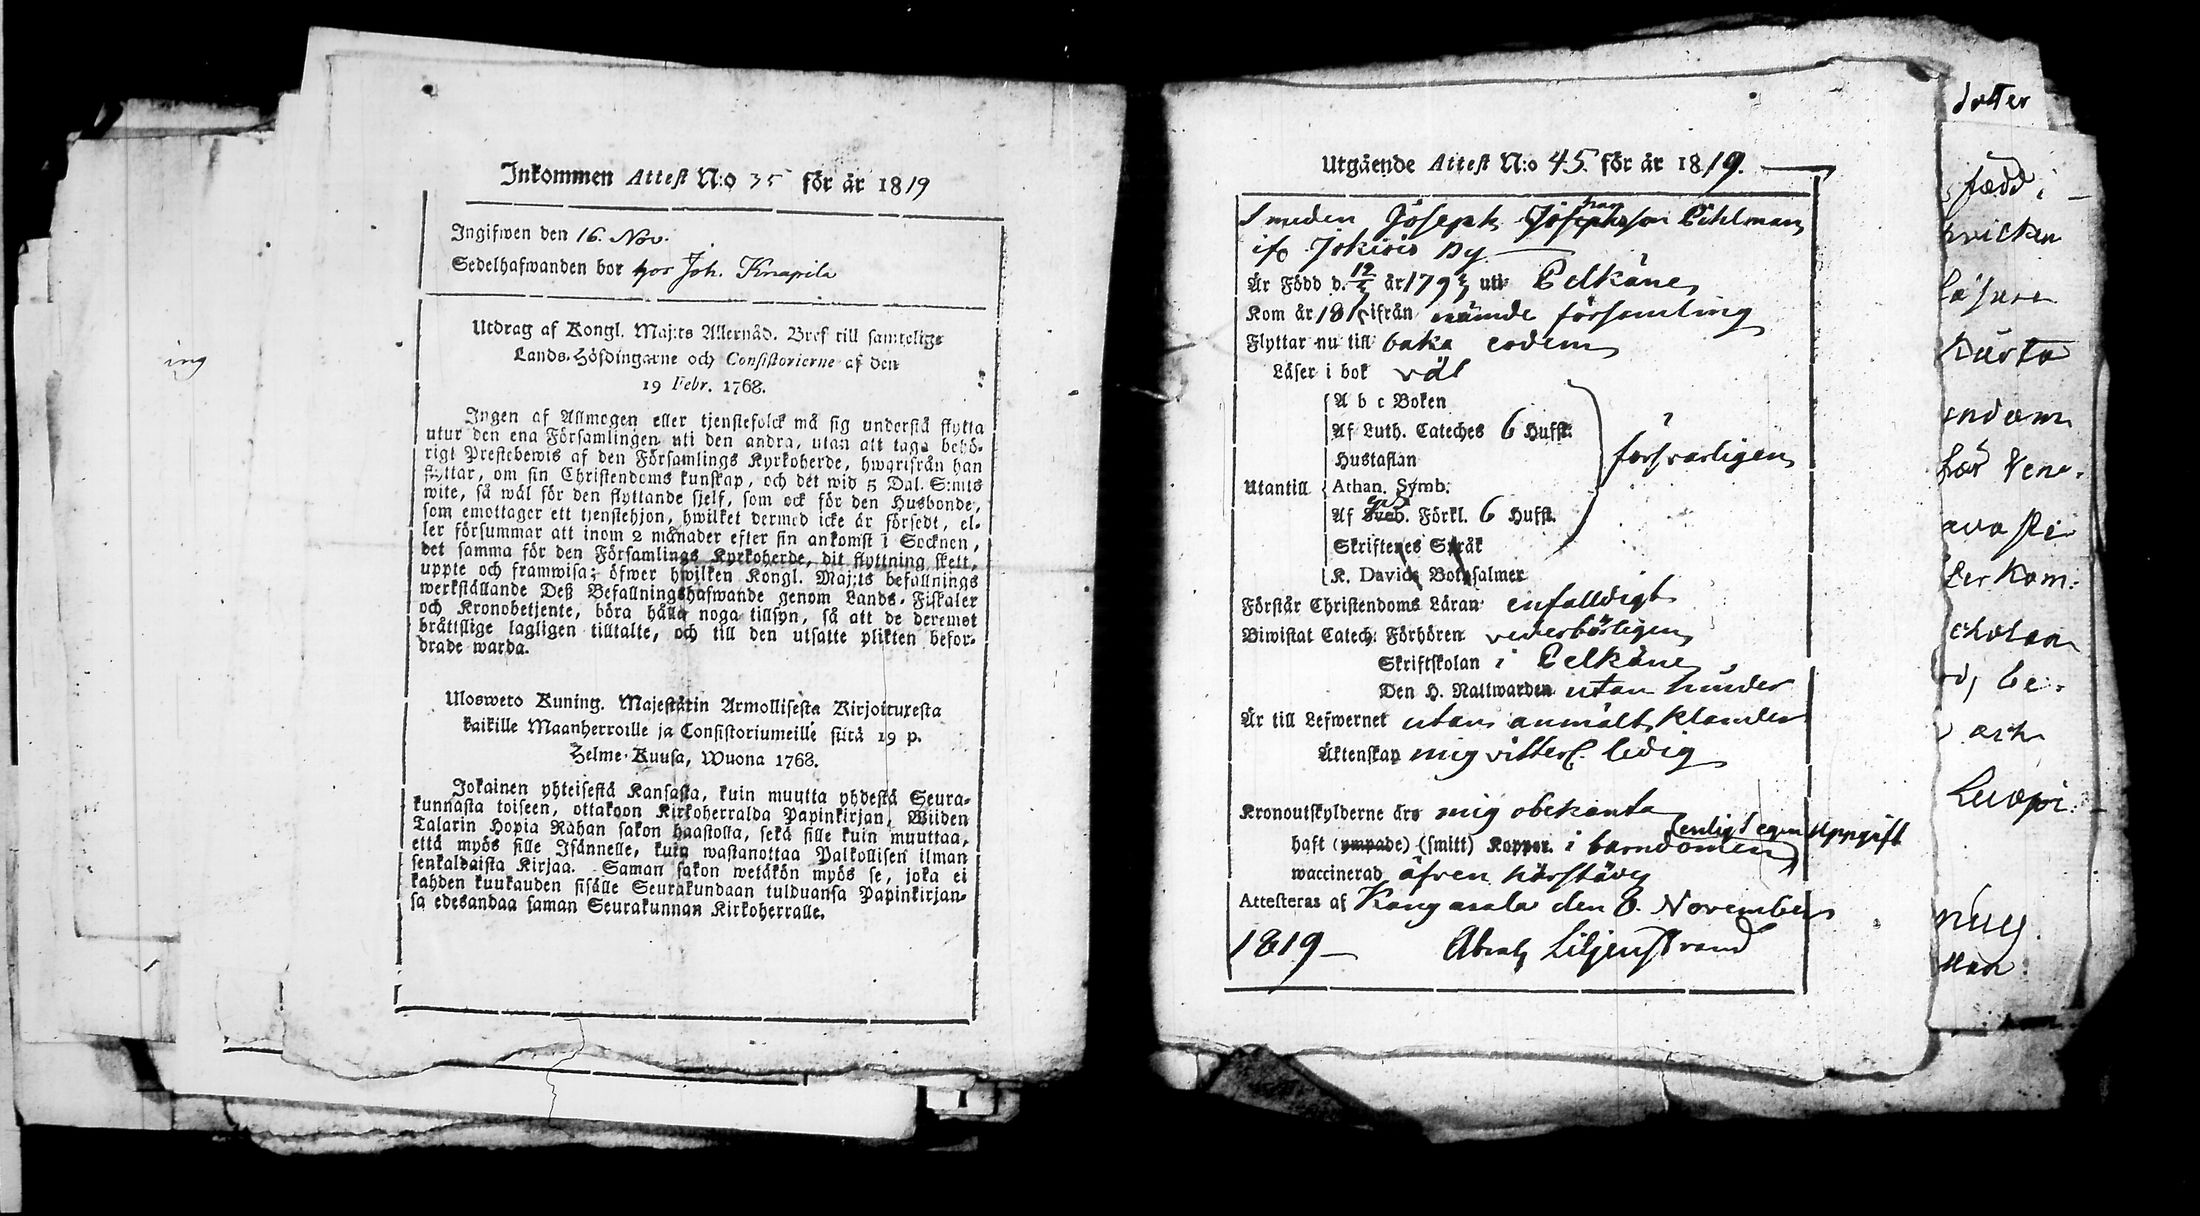 ing
Inkommen Attest N:o 35 för år 1819
Ingifwen den 16. Nov.
Sedelhafwanden bor hos Joh. Knapila
Utdrag af Kongl. Maj:ts Allernåd. Bref till samtelige
Lands-Höfdingarne och Consistorierne af den
19 Febr. 1768.
Ingen af Allmogen eller tjenstefolck må sig understå flytta
utur den ena Församlingen uti den andra, utan att taga behö-
rigt Prestebewis af den Församlings Kyrkoherde, hwarifrån han
flyttar, om sin Christendoms kunskap, och det wid 5 Dal. S:mts
wite, så wäl för den flyttande sjelf, som ock för den Husbonde,
som emottager ett tjenstehjon, hwilket dermed icke är försedt, el-
ler försummar att inom 2 månader efter sin ankomst i Socknen,
det samma för den Församlings Kyrkoherde, dit flyttning skett,
uppte och framwisa; öfwer hwilken Kongl. Maj:ts befallnings
werkställande Deß Befallningshafwande genom Lands-Fiskaler
och Kronobetjente, böra hålla noga tillsyn, så att de deremot
bråttslige lagligen tilltalte, och till den utsatte plikten befor-
drade warda.
Ulosweto Kuning. Majestätin Armollisesta Kirjoituxesta
kaikille Maanherroille ja Consistoriumeille siitä 19 p.
Helme-Kuusa, Wuona 1768.
Jokainen yhteisestä Kansasta, kuin muutta yhdestä Seura-
kunnasta toiseen, ottakoon Kirkoherralda Papinkirjan, Wiiden
Talarin Hopia Rahan sakon haastolla, sekä sille kuin muuttaa,
että myös sille Isännelle, kuin wastanottaa Palkollisen ilman
senkaldaista Kirjaa. Saman sakon wetäkön myös se, joka ei
kahden kuukauden sisälle Seurakundaan tulduansa Papinkirjan-
sa edesandaa saman Seurakunnan Kirkoherralle.
Utgående Attest N:o 45. för år 1819.
Smeden Joseph Josephsson Pihlman
if. Jokiois By
Är Född d. 12/5 år 179 uti Pelkäne
Kom år 181 ifrån nämde församling
Flyttar nu till baka eodem
Läser i bok väl
A b c Boken
Af Luth. Cateches 6 Hufst.
Hustaflan
försvarligen
Utantill Athan. Symb.
Af Sveb. Förkl. 6 Hufst.
Skriftenes Språk
K. Davids Botpsalmer
Förstår Christendoms Läran enfalldigt
Biwistat Catech. Förhören vederbörligen
Skriftskolan i Pelkäne
Den H. Nattwarden utan hinder
Är till Lefwernet utan anmält klander
Äktenskap mig vitterl. ledig
Kronoutskylderne äro mig obekanta
(enligt egen uppgift
haft (ympade) (smitt) Koppor. i barndomen)
waccinerad äfven härstädes
Attesteras af Kangasala den 8. November
1819 Abrah Liljenstrand
dotter
fædd i
hvilken
Läsare
endom
der kom:
be-
och